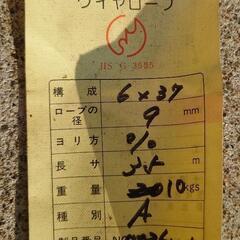 ワイヤロープ
JIS G 3535
構成 6×37
ロープの径 9 mm
ヨリ方 %
長サ m
重量 10 kgs
種別 A
製品番号